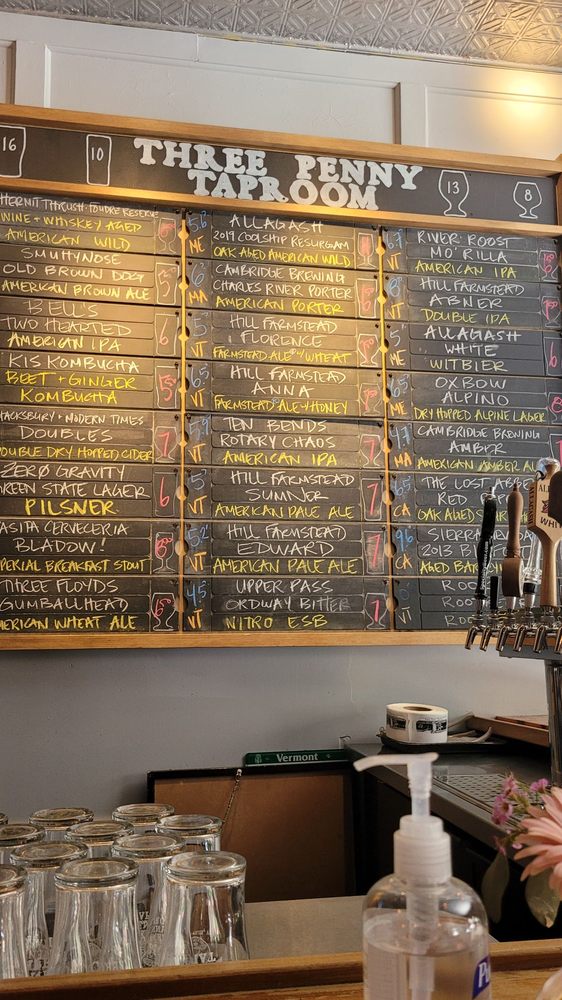 16
10
THREE PENNY
TAPROOM
13
8
HERMIT THRUSH FOUDRE RESERVE
WINE + WHISKEY AGED
AMERICAN WILD
SMUTTYNOSE
OLD BROWN DOG
AMERICAN BROWN ALE
5
BELL'S
TWO HEARTED
AMERICAN IPA
6
KIS KOMBUCHA
BEET + GINGER
KOMBUCHA
5
STACKSBURY + MODERN TIMES
DOUBLES
DOUBLE DRY HOPPED CIDER
7
ZERØ GRAVITY
GREEN STATE LAGER
PILSNER
6
CASITA CERVECERIA
BLADOW!
IMPERIAL BREAKFAST STOUT
6
THREE FLOYDS
GUMBALLHEAD
AMERICAN WHEAT ALE
6
ME
ALLAGASH
2019 COOLSHIP RESURGAM
OAK AGED AMERICAN WILD
MA
CAMBRIDGE BREWING
CHARLES RIVER PORTER
AMERICAN PORTER
5
VT
HILL FARMSTEAD
FLORENCE
FARMSTEAD ALE W/ WHEAT
6.5
VT
HILL FARMSTEAD
ANNA
FARMSTEAD ALE W/ HONEY
VT
TEN BENDS
ROTARY CHAOS
AMERICAN IPA
7
VT
HILL FARMSTEAD
SUMNER
AMERICAN PALE ALE
7
5.2
VT
HILL FARMSTEAD
EDWARD
AMERICAN PALE ALE
7
4.5
VT
UPPER PASS
ORDWAY BITTER
NITRO ESB
7
VT
RIVER ROOST
MO' RILLA
AMERICAN IPA
VT
HILL FARMSTEAD
ABNER
DOUBLE IPA
ME
ALLAGASH
WHITE
WITBIER
6
ME
OXBOW
ALPINO
DRY HOPPED ALPINE LAGER
MA
CAMBRIDGE BREWING
AMBER
AMERICAN AMBER
CA
THE LOST
RED
OAK AGED
9.6
CA
SIERRA
2013
AGED
ROO
ROO
ROO
WHI
Vermont